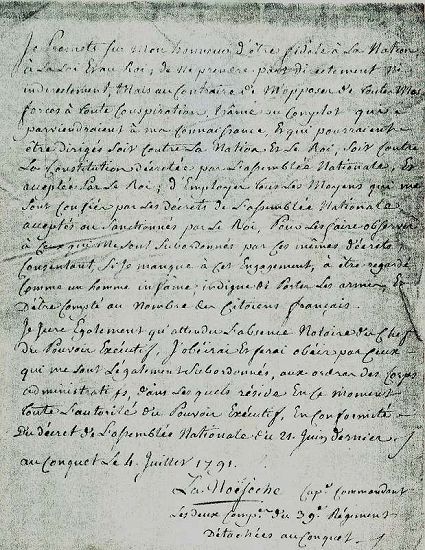 Je Promets sur mon honneur d'être fidèle à La Nation
à La Loi Et au Roi; de ne prendre part directement ni
indirectement, Mais au Contraire de M'opposer de toutes Mes
forces à toute Conspiration, trâme ou Complot qui
parviendraient à ma Connaissance, Et qui pourraient
être dirigés Soit Contre La Nation Et Le Roi, Soit Contre
La Constitution décrétée par L'assemblée Nationale, Et
acceptée Par Le Roi; d'Employer tous Les Moyens qui me
Sont Confiés par Les décrets de L'assemblée Nationale
acceptés ou Sanctionnés par Le Roi, Pour Les faire observer
à Ceux qui me Sont Subordonnés par Ces mêmes décrets,
Consentant, Si Je manque à Cet Engagement, à être regardé
Comme un homme infame, indigne de Porter Les armes, Et
D'être Compté au Nombre des Citoiens français.
Je Jure Egalement qu'attendu L'absence Notoire du Chef
du Pouvoir Exécutif, J'obéirai Et ferai obéir par Ceux
qui me Sont Légalement Subordonnés, aux ordres des Corps
administratifs, dans Les quels réside En Ce moment
toute L'autorité du Pouvoir Exécutif, En Conformité
Du décret de L'assemblée Nationale du 21. Juin dernier.
au Conquet Le 4. Juillet 1791.
La Noësèche Cap.e Commandant
Les deux Comp.es du 39.e Régiment
Détachées au Conquet.